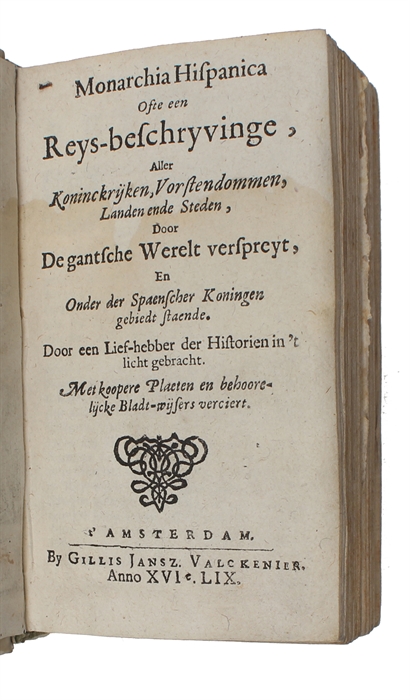 Monarchia Hiſpanica
Ofte een
Reys-beſchryvinge,
Aller
Koninckrijken, Vorſtendommen,
Landen ende Steden,
Door
De gantſche Werelt verſpreyt,
En
Onder der Spaenſcher Koningen
gebiedt ſtaende.
Door een Lief-hebber der Hiſtorien in 't
licht gebracht.
Met koopere Plaeten en behoore-
lijcke Bladt-wijſers verciert.
t'AMSTERDAM,
By GILLIS JANSZ. VALCKENIER.
Anno XVIc. LIX.